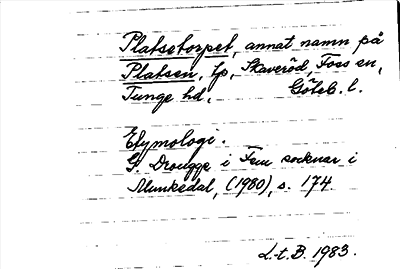 Platsetorpet, annat namn på
Platsen, tp, Skaveröd, Foss sn,
Tunge hd, Göteb. l.
Etymologi.
G. Drougge i Fem socknar i
Munkedal, (1980), s. 174
L.-t. B. 1983.